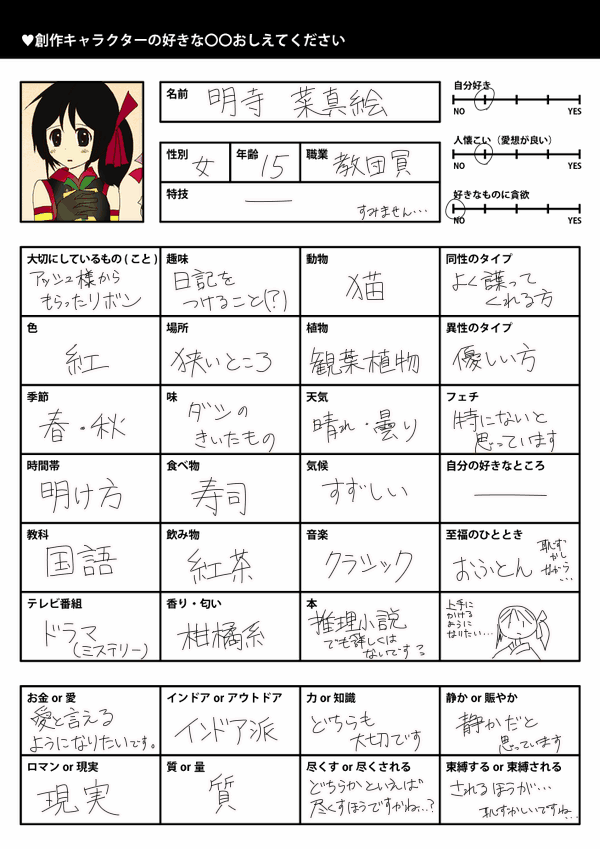 ♥創作キャラクターの好きな〇〇おしえてください
名前 明寺 菜真絵
自分好き
NO YES
性別 女 年齢 15 職業 教団員
人懐こい（愛想が良い）
NO YES
特技 ―
すみません…
好きなものに貪欲
NO YES
大切にしているもの(こと)
アッシュ様から
もらったリボン
趣味
日記を
つけること(?)
動物
猫
同性のタイプ
よく喋って
くれる方
色
紅
場所
狭いところ
植物
観葉植物
異性のタイプ
優しい方
季節
春・秋
味
ダシの
きいたもの
天気
晴れ・曇り
フェチ
特にないと
思っています
時間帯
明け方
食べ物
寿司
気候
すずしい
自分の好きなところ
―
教科
国語
飲み物
紅茶
音楽
クラシック
至福のひととき
おふとん
恥ず
かし
ながら
…
テレビ番組
ドラマ
(ミステリー)
香り・匂い
柑橘系
本
推理小説
でも詳しくは
ないです
上手に
かける
ように
なりたい…
お金 or 愛
愛と言える
ようになりたいです。
インドア or アウトドア
インドア派
力 or 知識
どちらも
大切です
静か or 賑やか
静かだと
思っています
ロマン or 現実
現実
質 or 量
質
尽くす or 尽くされる
どちらかといえば
尽くすほうですかね…?
束縛する or 束縛される
されるほうが…
恥ずかしいですね…